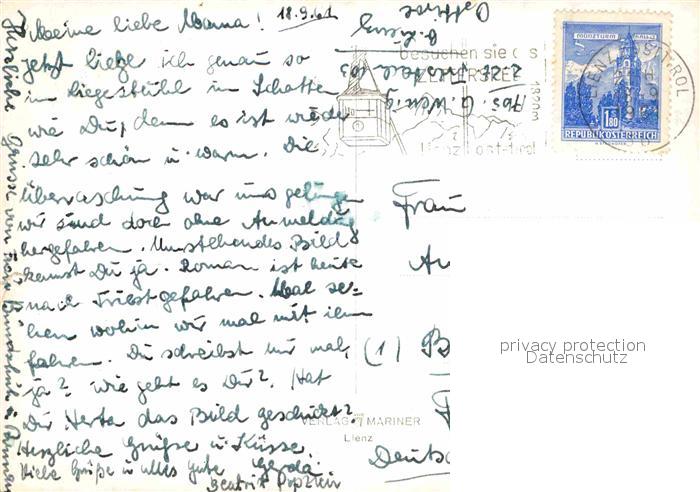 Meine liebe Mama! 18.9.61
jetzt liege ich genau so
im Liegestuhl im Schatten
wie Du, denn es ist wieder
sehr schön u. warm. Die
Überraschung war uns gelungen
wir sind doch ohne Anmeldung
hergefahren. Umstehendes Bild
kennst Du ja. Roman ist heute
nach Triest gefahren. Mal se-
hen wohin wir mal mit ihm
fahren. Du schreibst mir mal,
ja? Wie geht es Dir? Hat
Dir Herta das Bild geschickt?
Herzliche Grüße u. Küsse
Gerda
Viele Grüße u alles Gute
Beatrix
Herzliche Grüsse von
Abs. G.
besuchen sie das
Lienz Osttirol
MÜNZTURM HALL
1.80
REPUBLIK ÖSTERREICH
Frau
(1) B
Deutsc
VERLAG MARINER
Lienz
privacy protection
Datenschutz